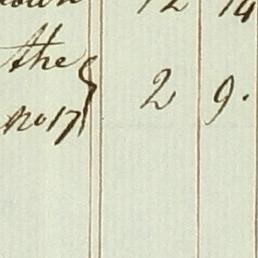 12 14
the
2 9.
No 17